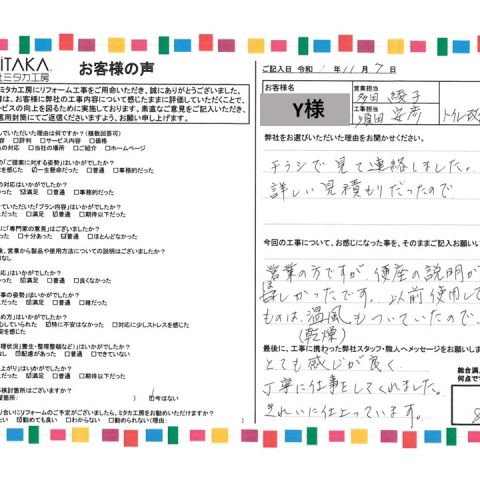 ITAKA
社ミタカ工房
お客様の声
ミタカ工房にリフォーム工事をご用命いただき、誠にありがとうございました。
は、お客様に弊社の工事内容について感じたままに評価していただくことで、
ービスの向上を図るために実施しております。素直なご意見をご記入いただき、
返信用封筒にてご返送いただきますよう、お願い申し上げます。
していただいた理由は何ですか?(複数回答可)
容 □評判 □サービス内容 □価格
ちの対応 □当社の場所 □ご紹介 □ホームページ
の「ご提案に対する姿勢」はいかがでしたか?
を感じた ☑一生懸命だった □普通 □事務的だった
の対応はいかがでしたか?
だった ☑満足 □普通 □事務的だった
ていただいた「プラン内容」はいかがでしたか?
だった ☑満足 □普通 □期待以下だった
に「専門家の意見」はございましたか?
った □十分あった ☑普通 □ほとんどなかった
後、営業から製品や使用方法についての説明はございましたか?
なし
応」はいかがでしたか?
だった ☑満足 □普通 □良くなかった
事の姿勢」はいかがでしたか?
だった ☑満足 □普通 □雑だった
め方」はいかがでしたか?
心していられた ☑特に不安はなかった □対応に少しストレスを感じた
不安を感じた
管理状況(養生・整理整頓など)」はいかがでしたか?
なし ☑配慮があった □普通 □できていない
上がり」はいかがでしたか?
だった ☑満足 □普通 □期待以下だった
検討箇所はございますか?
望箇所: ) ☑今はない
り合いにリフォームのご予定がございましたら、ミタカ工房をお勧めいただけますか?
たい ☑勧めても良い □わからない □勧められない(理由:
ご記入日 令和 年 11 月 7 日
お客様名
Y様
営業担当
多田 綾子
工事担当
濱田 安彦
トイレ改
弊社をお選びいただいた理由をお聞かせください。
チラシで見て連絡しました。
詳しい見積もりだったので
今回の工事について、お感じになった事を、そのままご記入お願い
営業の方ですが、便座の説明が
ほしかったです。以前使用して
ものは、温風もついていたので。
(乾燥)
最後に、工事に携わった弊社スタッフ・職人へメッセージをお願いしま
とても感じが良く
丁寧に仕事をしてくれました。
きれいに仕上っています。
総合満
何点で